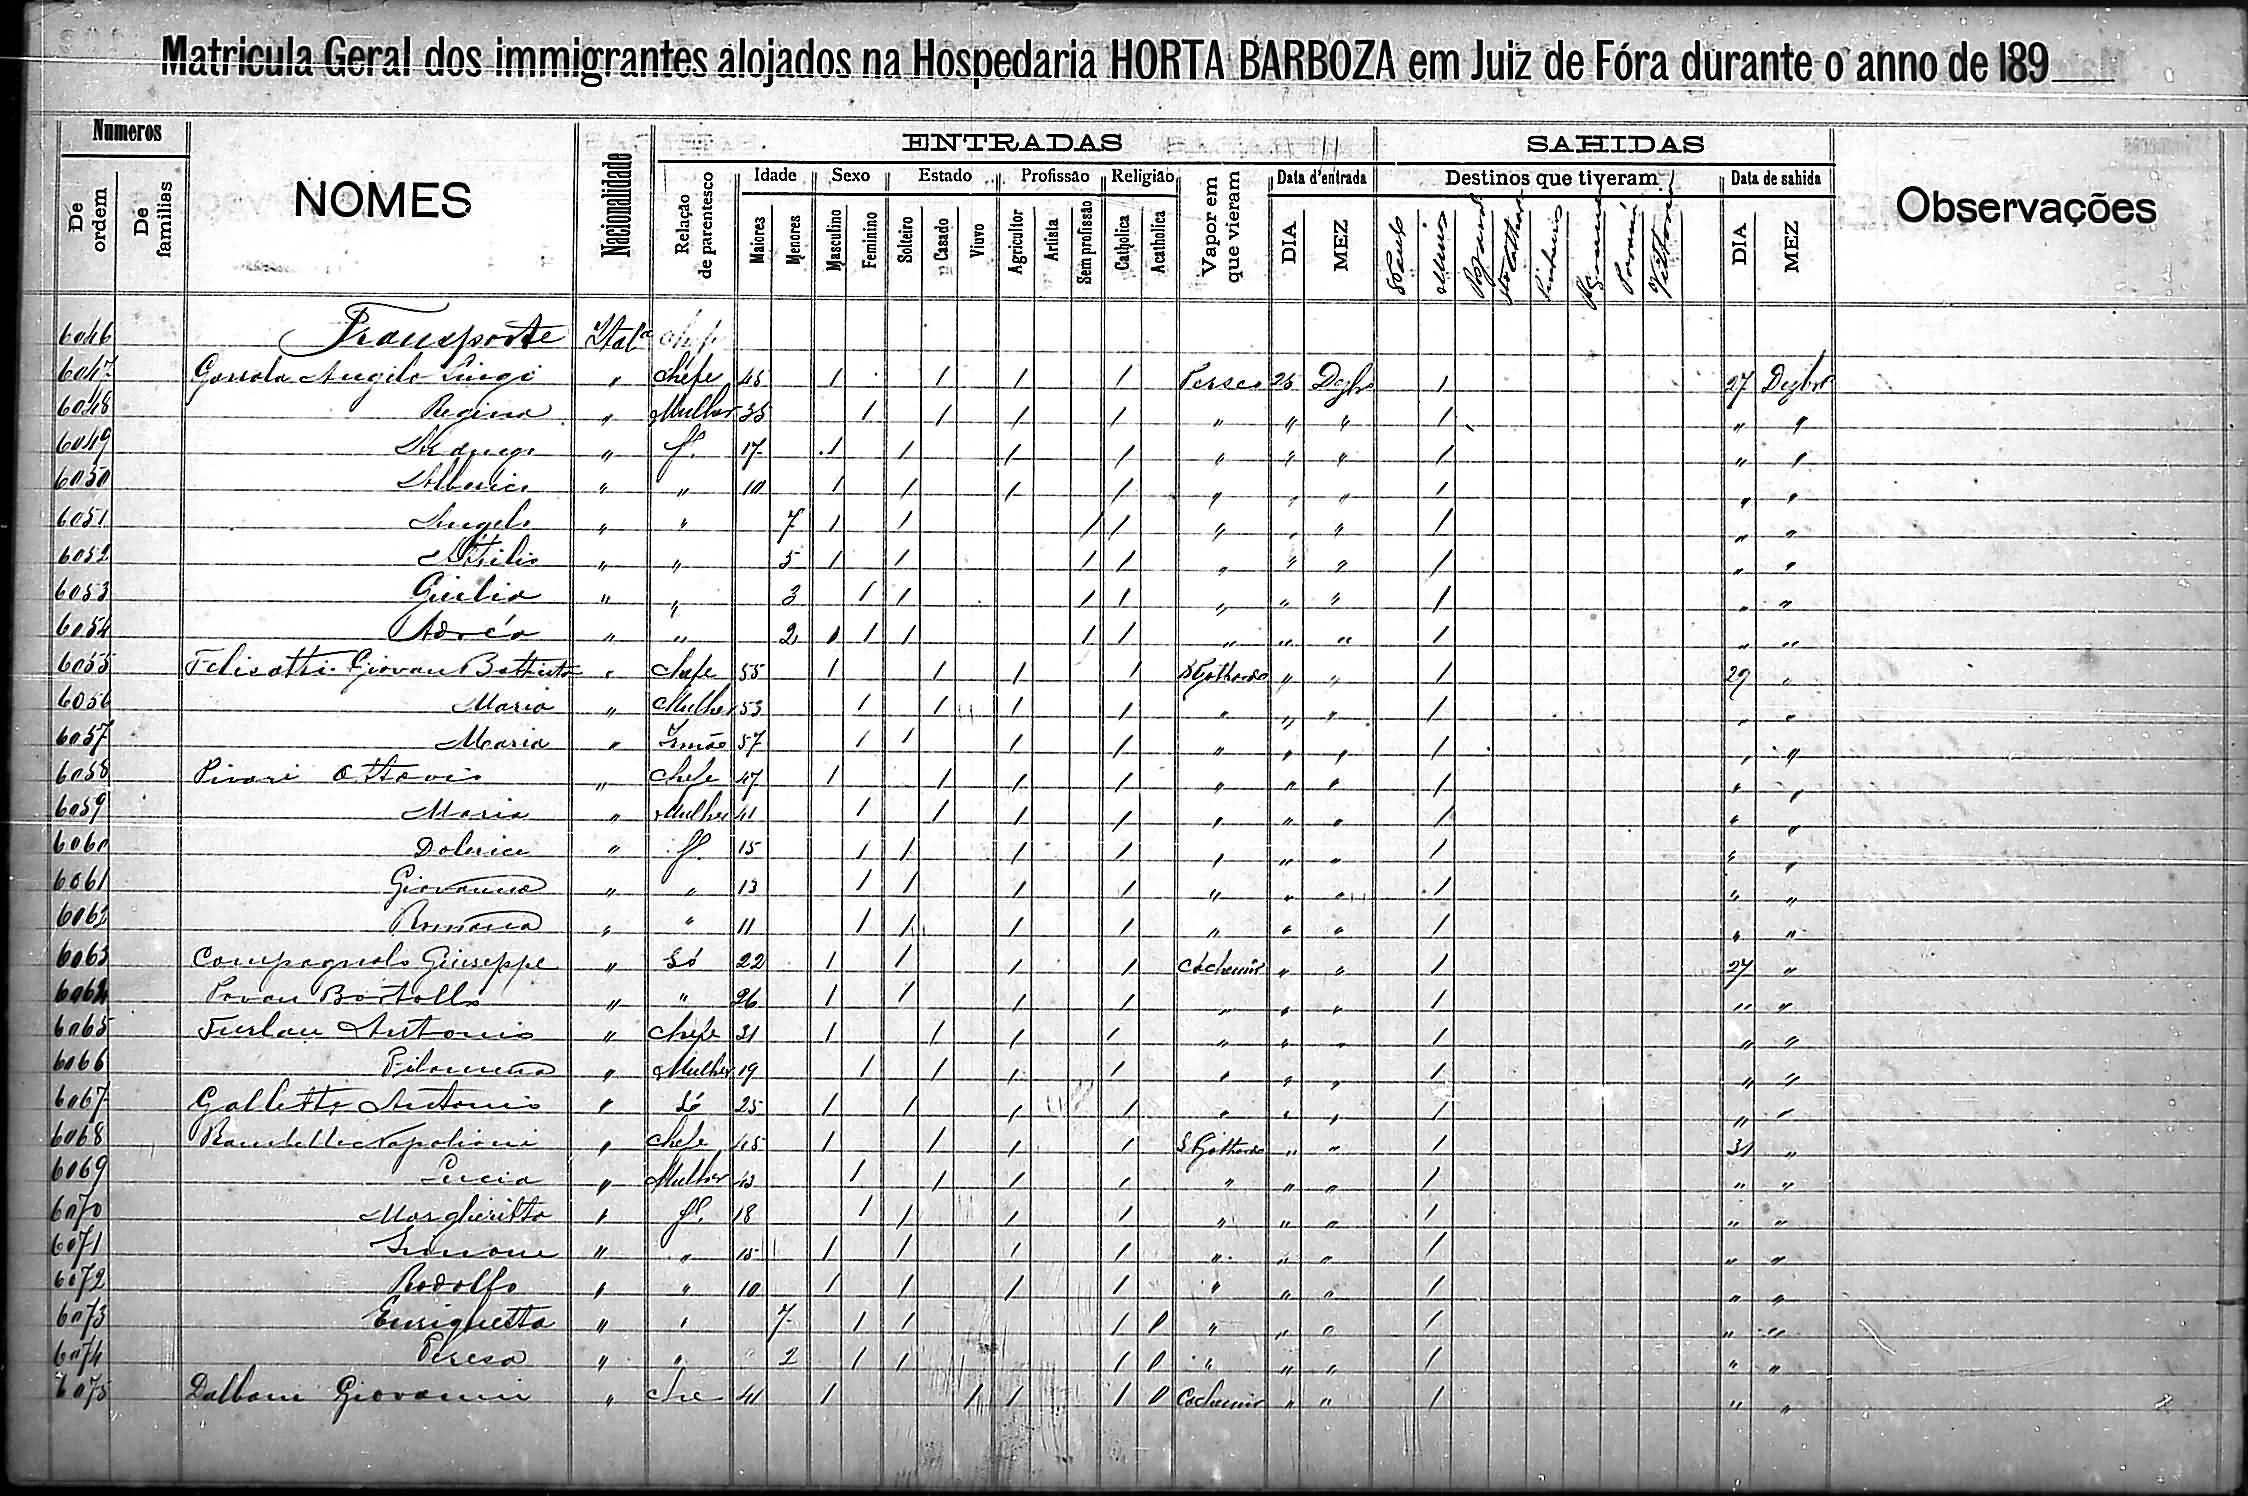 Matricula Geral dos immigrantes alojados na Hospedaria HORTA BARBOZA em Juiz de Fóra durante o anno de 189
Numeros ENTRADAS SAHIDAS
De ordem De familias NOMES Nacionalidade Relação de parentesco Idade Sexo Estado Profissão Religião Vapor em que vieram Data d'entrada Destinos que tiveram Data de sahida Observações
Maiores Menores Masculino Feminino Solteiro Casado Viuvo Agricultor Artista Sem profissão Catholica Acatholica DIA MEZ S Paulo Minas DIA MEZ
6046 Transporte Itala chefe
6047 Angelo Luigi " chefe 45 1 1 1 1 Perseo 25 Dezbro 1 27 Dezbro
6048 Regina " Mulher 35 1 1 1 1 " " " 1 " "
6049 " f. 17 1 1 1 1 " " " 1 " "
6050 Alberico " " 10 1 1 1 1 " " " 1 " "
6051 Angelo " " 7 1 1 1 1 " " " 1 " "
6052 Attilio " " 5 1 1 1 1 " " " 1 " "
6053 Giulia " " 3 1 1 1 1 " " " 1 " "
6054 " " 2 1 1 1 1 " " " 1 " "
6055 Felisatti Giovan Battista " chefe 55 1 1 1 1 S Gothardo " " 1 29 "
6056 Maria " Mulher 53 1 1 1 1 " " " 1 " "
6057 Maria " Irmão 57 1 1 1 1 " " " 1 " "
6058 Pivari Ottavio " chefe 47 1 1 1 1 " " " 1 " "
6059 Maria " Mulher 41 1 1 1 1 " " " 1 " "
6060 " f. 15 1 1 1 1 " " " 1 " "
6061 Giovanna " " 13 1 1 1 1 " " " 1 " "
6062 Romana " " 11 1 1 1 1 " " " 1 " "
6063 Compagnolo Giuseppe " Só 22 1 1 1 1 Cachemir " " 1 27 "
6064 Pavan Bortollo " " 26 1 1 1 1 " " " 1 " "
6065 Furlan Antonio " chefe 31 1 1 1 1 " " " 1 " "
6066 Filomena " Mulher 19 1 1 1 1 " " " 1 " "
6067 Galletto Antonio " Só 25 1 1 1 1 " " " 1 " "
6068 Napolioni " chefe 45 1 1 1 1 S Gothardo " " 1 31 "
6069 Lucia " Mulher 43 1 1 1 1 " " " 1 " "
6070 Margheritta " f. 18 1 1 1 1 " " " 1 " "
6071 Simone " " 15 1 1 1 1 " " " 1 " "
6072 Rodolfo " " 10 1 1 1 1 " " " 1 " "
6073 Enrighetta " " 7 1 1 1 " " " 1 " "
6074 Teresa " " 2 1 1 1 " " " 1 " "
6075 Dalbani Giovanni " che 41 1 1 1 1 Cachemir " " 1 " "